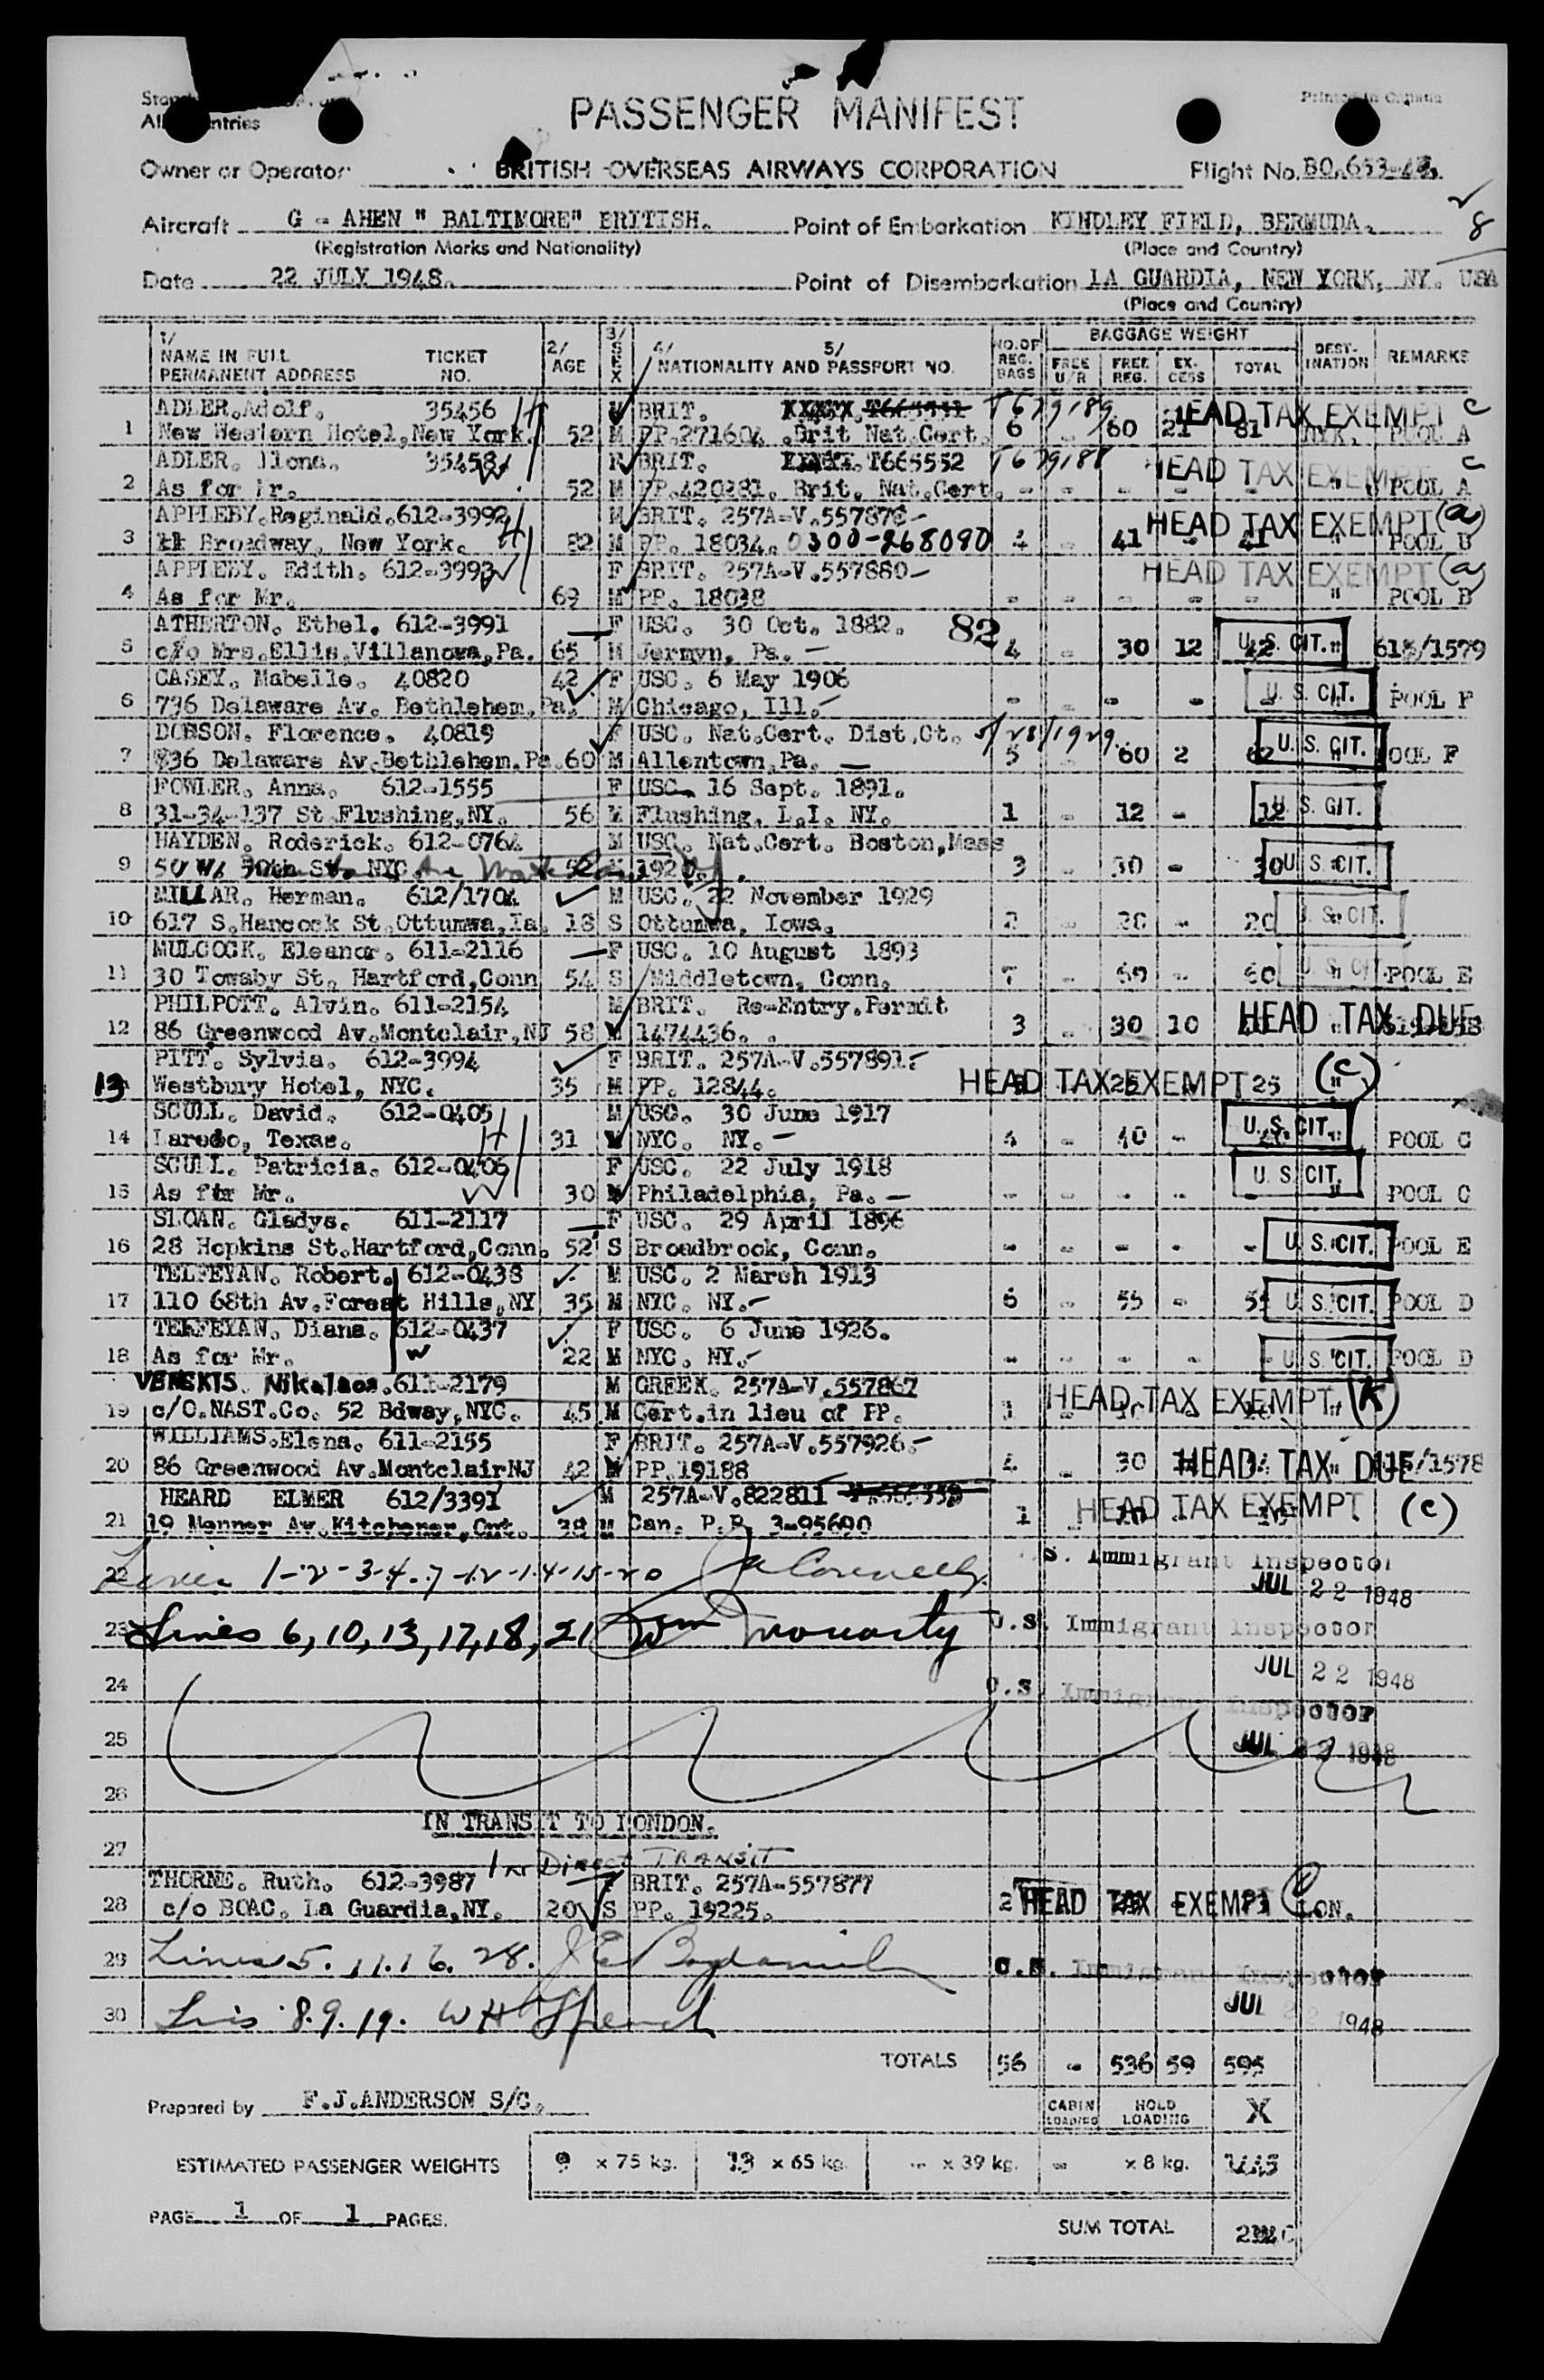 PASSENGER MANIFEST
Owner or Operator BRITISH OVERSEAS AIRWAYS CORPORATION Flight No.
Aircraft G - AHEN " BALTIMORE" BRITISH. Point of Embarkation KINDLEY FIELD, BERMUDA.
8
(Registration Marks and Nationality) (Place and Country)
Date 22 JULY 1948. Point of Disembarkation LA GUARDIA, NEW YORK, NY. USA
(Place and Country)
1/ NAME IN FULL PERMANENT ADDRESS TICKET NO. 2/ AGE 3/ SEX 4/ 5/ NATIONALITY AND PASSPORT NO. NO. OF REG. BAGS BAGGAGE WEIGHT FREE U/R FREE REG. EX-CESS TOTAL DEST-INATION REMARKS
ADLER.Adolf. 35456 H BRIT. T679189 HEAD TAX EXEMPT C
1 New Western Hotel,New York. 52 M PP.271604 .Brit Nat.Cert. 6 - 60 21 81 NYK. POOL A
ADLER. Ilona. 35458 W F BRIT. T665552 T679188 HEAD TAX EXEMPT C
2 As for Mr. 52 M PP.420281. Brit. Nat.Cert. - - - - - " POOL A
APPLEBY.Reginald.612-3992 H M BRIT. 257A-V.557878- HEAD TAX EXEMPT (a)
3 Broadway, New York. 82 M PP. 18034. 0300-268090 4 - 41 - 41 " POOL B
APPLEBY. Edith. 612-3993 W F BRIT. 257A-V.557880- HEAD TAX EXEMPT (a)
4 As for Mr. 69 M PP. 18038 - - - - - " POOL B
ATHERTON. Ethel. 612-3991 F USC. 30 Oct. 1882. 82
5 c/o Mrs.Ellis.Villanova,Pa. 65 M Jermyn, Pa. - 4 - 30 12 42 U. S. CIT. " 615/1579
CASEY. Mabelle. 40820 42 F USC. 6 May 1906
6 736 Delaware Av. Bethlehem,Pa. M Chicago, Ill.- - - - - - U. S. CIT. POOL F
DOBSON. Florence. 40819 F USC. Nat.Cert. Dist.Ct. 5/28/1929.
7 736 Delaware Av.Bethlehem.Pa.60 M Allentown,Pa. - 5 - 60 2 62 U. S. CIT. POOL F
FOWLER. Anna. 612-1555 F USC. 16 Sept. 1891.
8 31-34-137 St.Flushing,NY. 56 M Flushing, L.I. NY. 1 - 12 - 12 U. S. CIT.
HAYDEN. Roderick. 612-0764 M USC. Nat.Cert. Boston,Mass
9 50 W. 30th St. NYC. 52 M 3 - 30 - 30 U. S. CIT.
MILLAR. Herman. 612/1704 M USC. 22 November 1929
10 617 S.Hancock St.Ottumwa,Ia. 18 S Ottumwa, Iowa. 2 - 20 - 20 U. S. CIT.
MULCOCK. Eleanor. 611-2116 F USC. 10 August 1893
11 30 Towaby St. Hartford,Conn 54 S Middletown, Conn. 7 - 60 - 60 U. S. CIT. POOL E
PHILPOTT. Alvin. 611-2154 M BRIT. Re-Entry.Permit
12 86 Greenwood Av.Montclair,NJ 58 M 1474436. . 3 - 30 10 40 HEAD TAX DUE
PITT. Sylvia. 612-3994 F BRIT. 257A-V.557891.-
13 Westbury Hotel, NYC. 35 M PP. 12844. HEAD TAX EXEMPT 25 (C)
SCULL. David. 612-0405 H M USC. 30 June 1917
14 Laredo, Texas. 31 M NYC. NY.- 4 - 40 - 40 U. S. CIT. " POOL C
SCULL. Patricia. 612-0406 F USC. 22 July 1918
15 As for Mr. W 30 M Philadelphia, Pa.- - - - - U. S. CIT. POOL C
SLOAN. Gladys. 611-2117 F USC. 29 April 1896
16 28 Hopkins St.Hartford,Conn. 52 S Broadbrook, Conn. - - - - - U. S. CIT. POOL E
TELFEYAN. Robert. 612-0438 M USC. 2 March 1913
17 110 68th Av.Forest Hills,NY 35 M NYC. NY.- 6 - 55 - 55 U. S. CIT. POOL D
TELFEYAN. Diana. 612-0437 F USC. 6 June 1926.
18 As for Mr. W 22 M NYC. NY.- - - - - - U. S. CIT. POOL D
VENEKIS. Nikolaos.611-2179 M GREEK. 257A-V.557867 HEAD TAX EXEMPT (K)
19 c/O.NAST.Co. 52 Bdway,NYC. 45 M Cert.in lieu of PP.
WILLIAMS.Elena. 611-2155 F BRIT. 257A-V.557926.-
20 86 Greenwood Av.MontclairNJ 42 M PP.19188 4 - 30 HEAD TAX DUE 615/1578
HEARD ELMER 612/3391 M 257A-V.822811 HEAD TAX EXEMPT (C)
21 19 Manner Av.Kitchener,Ont. 38 M Can. P.P. 3-95690
22 Lines 1-2-3-4-7-12-14-15-20 U.S. Immigrant Inspector
JUL 22 1948
23 Lines 6, 10, 13, 17, 18, 21 Wm Moriarty U.S. Immigrant Inspector
JUL 22 1948
24 U.S. Immigrant Inspector
25 JUL 22 1948
26
IN TRANSIT TO LONDON.
27
In Direct TRANSIT
THORNE. Ruth. 612-3987 F BRIT. 257A-557877
28 c/o BOAC. La Guardia,NY. 20 S PP. 19225. 2 HEAD TAX EXEMPT C LON.
29 Lines 5. 11. 16. 28. U.S. Immigrant Inspector
JUL 22 1948
30 Lines 8. 9. 19.
TOTALS 56 - 536 59 595
Prepared by F.J.ANDERSON S/C. CABIN LOADING HOLD LOADING X
ESTIMATED PASSENGER WEIGHTS 9 x 75 kg. 13 x 65 kg. - x 39 kg. - x 8 kg.
PAGE 1 OF 1 PAGES.
SUM TOTAL